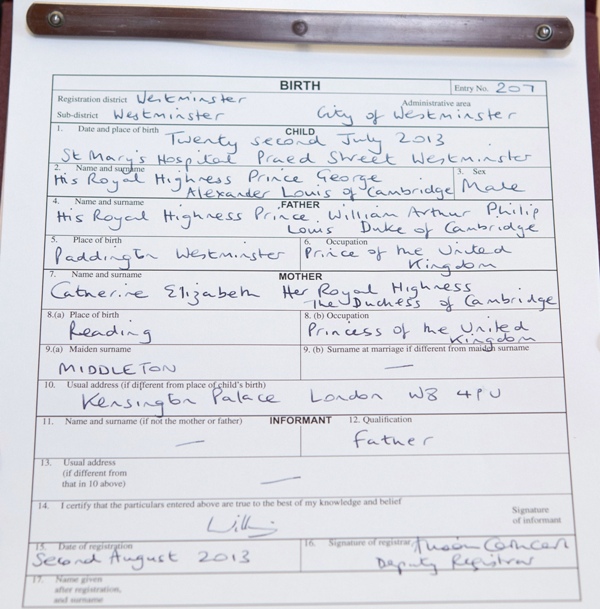 BIRTH Entry No. 207
Registration district Westminster Administrative area
Sub-district Westminster City of Westminster
1. Date and place of birth CHILD
Twenty second July 2013
St Mary's Hospital Praed Street Westminster
2. Name and surname 3. Sex
His Royal Highness Prince George
Alexander Louis of Cambridge Male
4. Name and surname FATHER
His Royal Highness Prince William Arthur Philip
Louis Duke of Cambridge
5. Place of birth 6. Occupation
Paddington Westminster Prince of the United
Kingdom
7. Name and surname MOTHER
Catherine Elizabeth Her Royal Highness
The Duchess of Cambridge
8.(a) Place of birth 8. (b) Occupation
Reading Princess of the United
Kingdom
9.(a) Maiden surname 9. (b) Surname at marriage if different from maiden surname
MIDDLETON —
10. Usual address (if different from place of child's birth)
Kensington Palace London W8 4PU
11. Name and surname (if not the mother or father) INFORMANT 12. Qualification
— Father
13. Usual address
(if different from
that in 10 above) —
14. I certify that the particulars entered above are true to the best of my knowledge and belief
Signature
of informant
15. Date of registration 16. Signature of registrar
Second August 2013 Deputy Registrar
17. Name given
after registration,
and surname